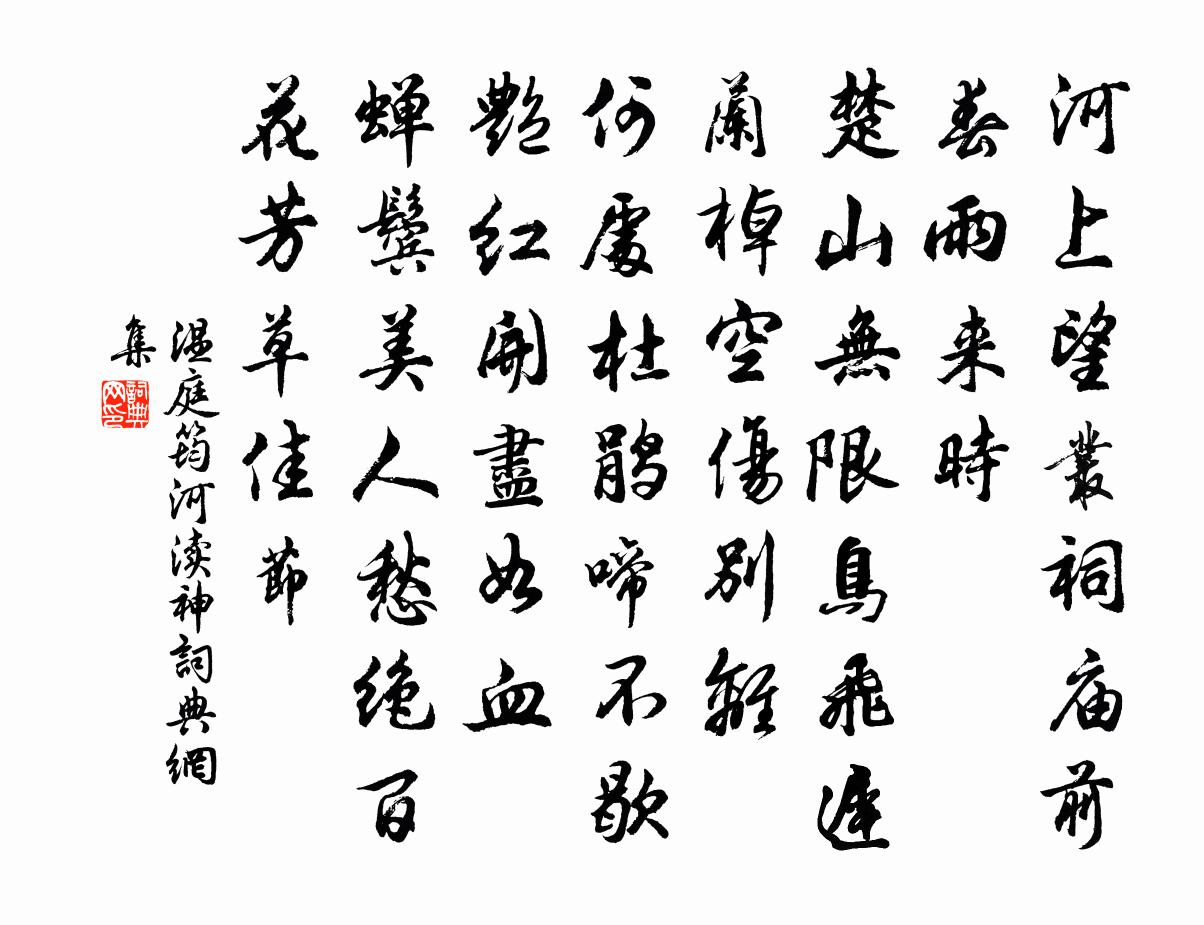 河上望叢祠庙前
春雨来時
楚山無限鳥飛遲
蘭棹空傷别離
何處杜鹃啼不歇
艷红開盡如血
蝉鬢美人愁绝百
花芳草佳節
温庭筠河渎神詞典網
集
詞典
网印